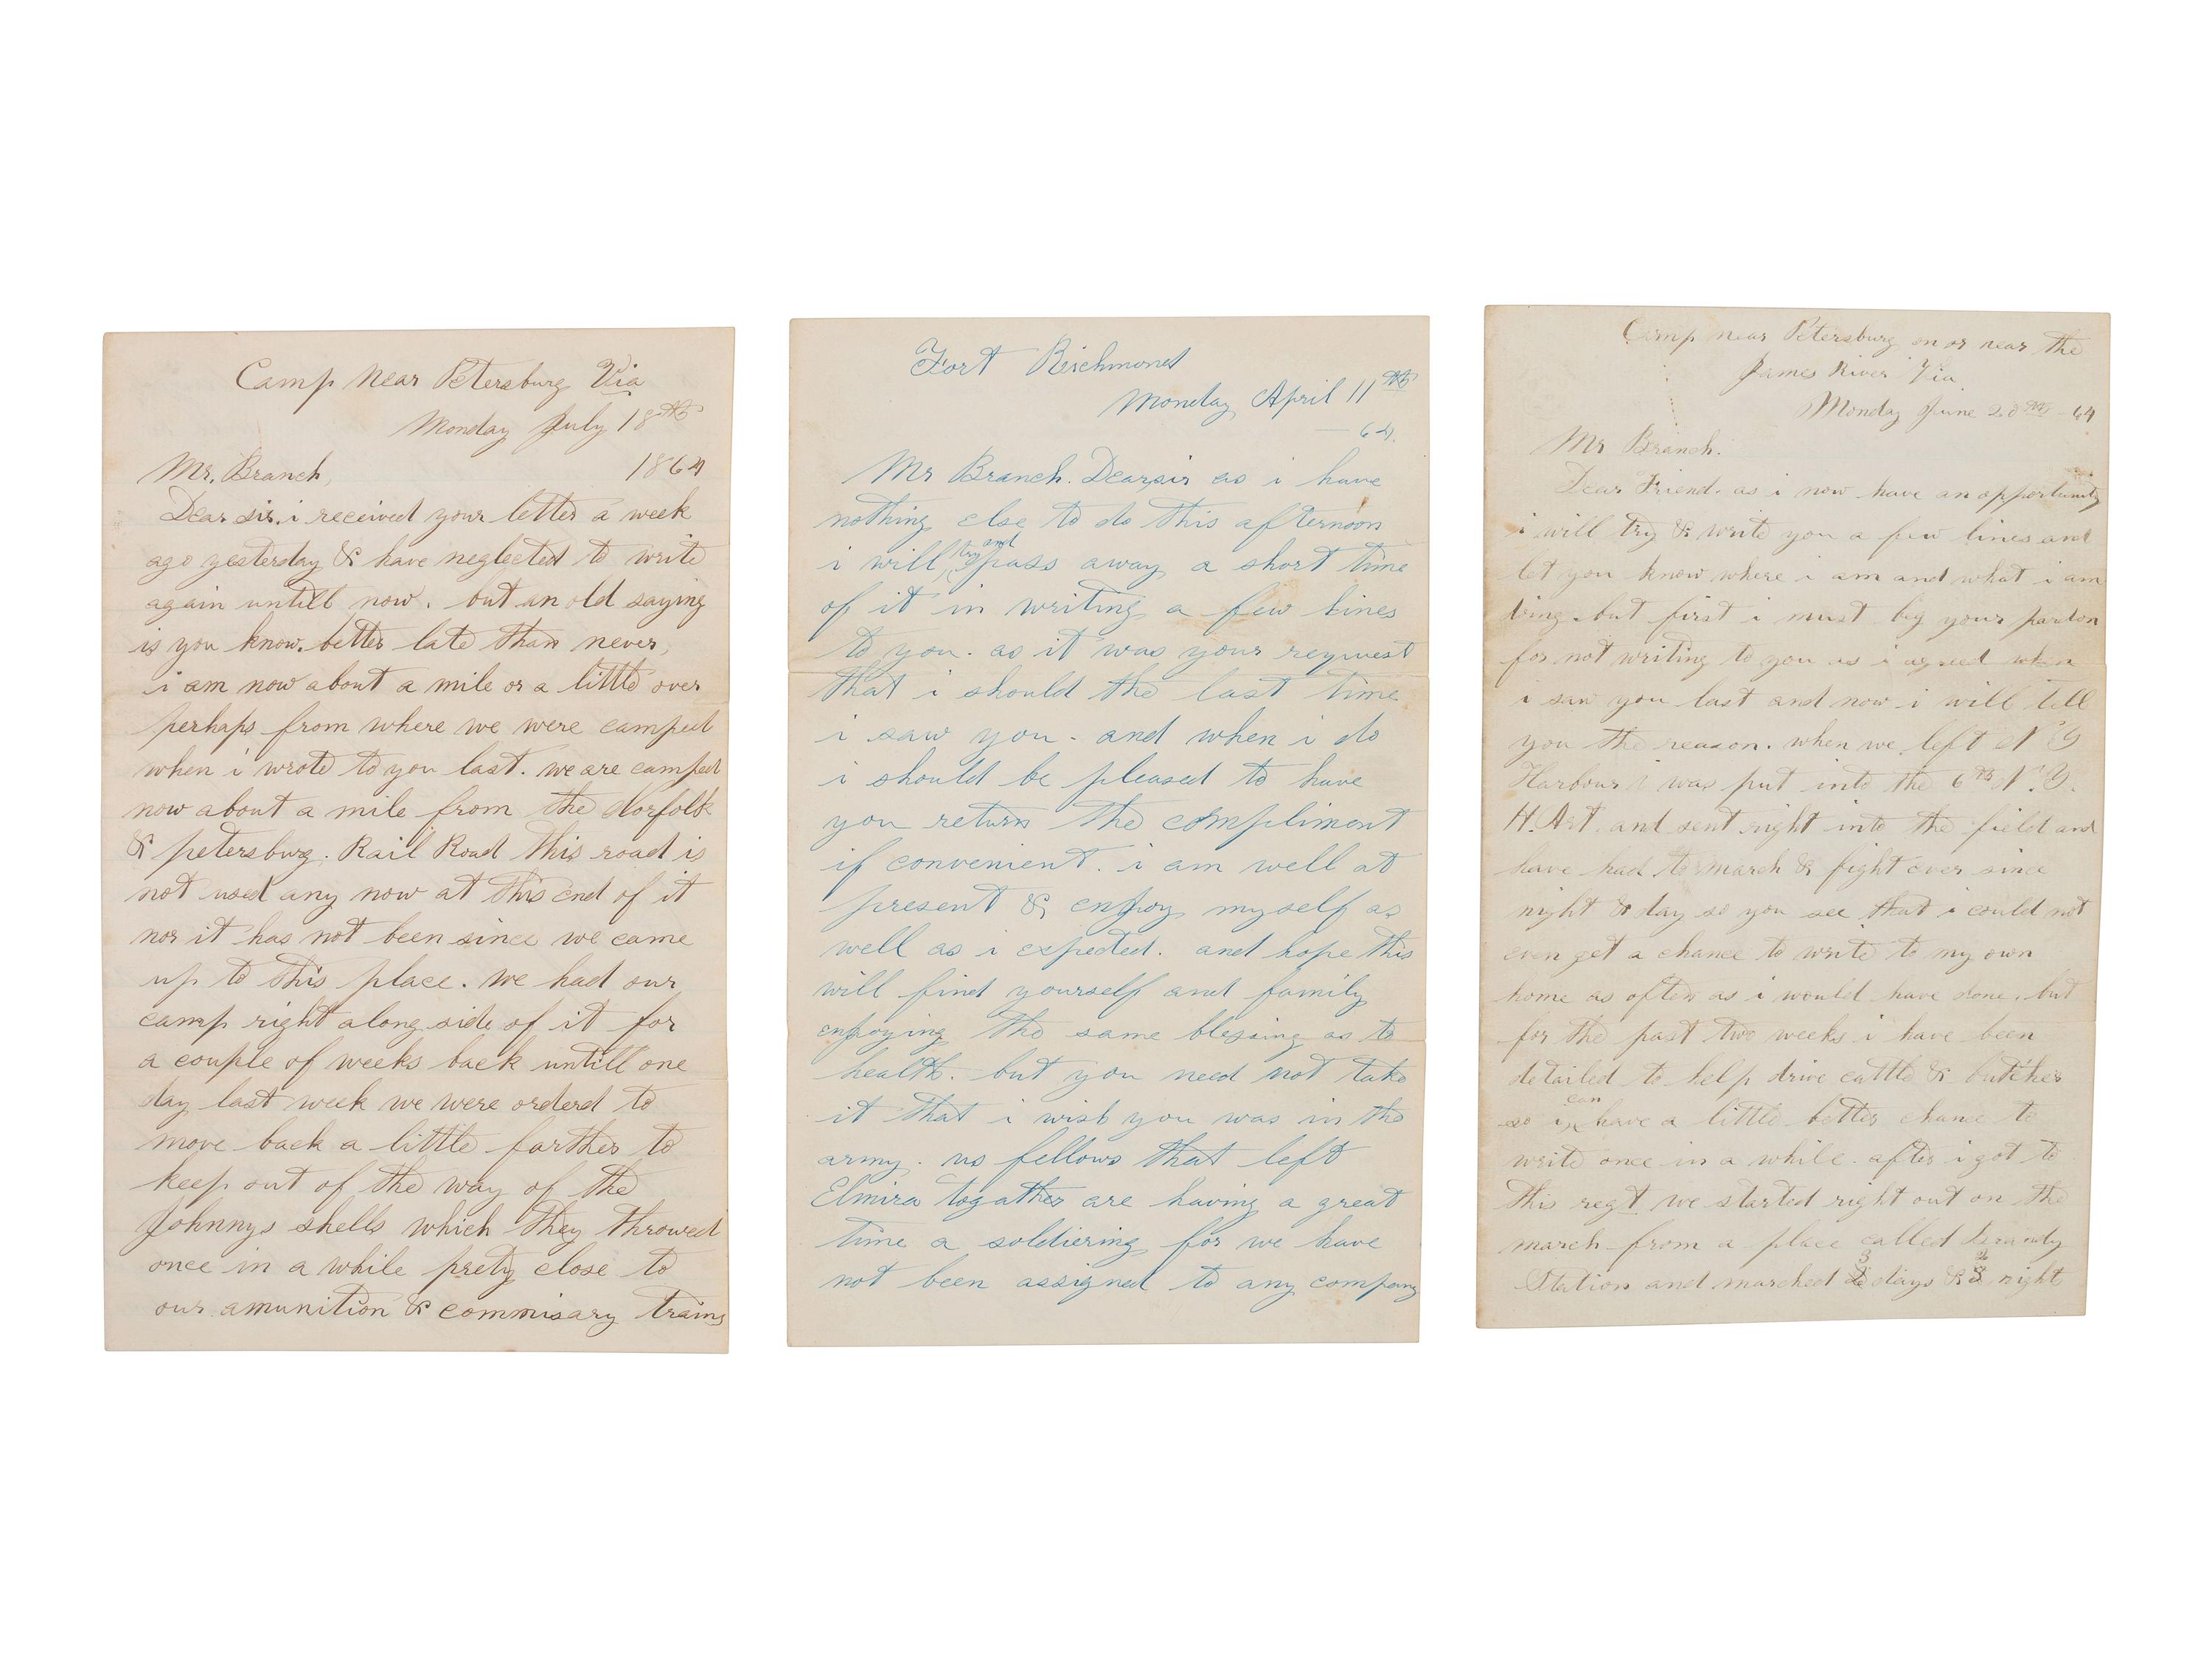 Camp Near Petersburg Via
Monday July 18th
1864
Mr. Branch,
Dear sir. i received your letter a week
ago yesterday & have neglected to write
again untill now. but an old saying
is you know. better late than never,
i am now about a mile or a little over
perhaps from where we were camped
when i wrote to you last. we are camped
now about a mile from the Norfolk
& petersburg. Rail Road this road is
not used any now at this end of it
nor it has not been since we came
up to this place. we had our
camp right along side of it for
a couple of weeks back untill one
day last week we were orderd to
move back a little farther to
keep out of the way of the
Johnnys shells which they throwed
once in a while prety close to
our amunition & commisary trains
Fort Richmond
Monday April 11th
— 64.
Mr Branch. Dear sir as i have
nothing else to do this afternoon
i will try and pass away a short time
of it in writing a few lines
to you. as it was your reqwest
that i should the last time
i saw you. and when i do
i should be pleased to have
you return the compliment
if convenient. i am well at
present & enjoy myself as
well as i expected. and hope this
will find yourself and family
enjoying the same blessing as to
health. but you need not take
it that i wish you was in the
army. us fellows that left
Elmira togather are having a great
time a soldiering for we have
not been assigned to any company
Camp near Petersburg on or near the
James River Via
Monday June 20th - 64
Mr Branch.
Dear Friend. as i now have an opportunity
i will try & write you a few lines and
let you know where i am and what i am
doing. but first i must beg your pardon
for not writing to you as i agreed when
i saw you last and now i will tell
you the reason. when we left N.Y
Harbour i was put into the 6th N.Y.
H. Art. and sent right into the field and
have had to march & fight ever since
night & day so you see that i could not
even get a chance to write to my own
home as often as i would have done. but
for the past two weeks i have been
detailed to help drive cattle & butcher
so i can have a little better chance to
write once in a while. after i got to
this regt we started right out on the
march from a place called Brandy
Station and marched 3 days & night